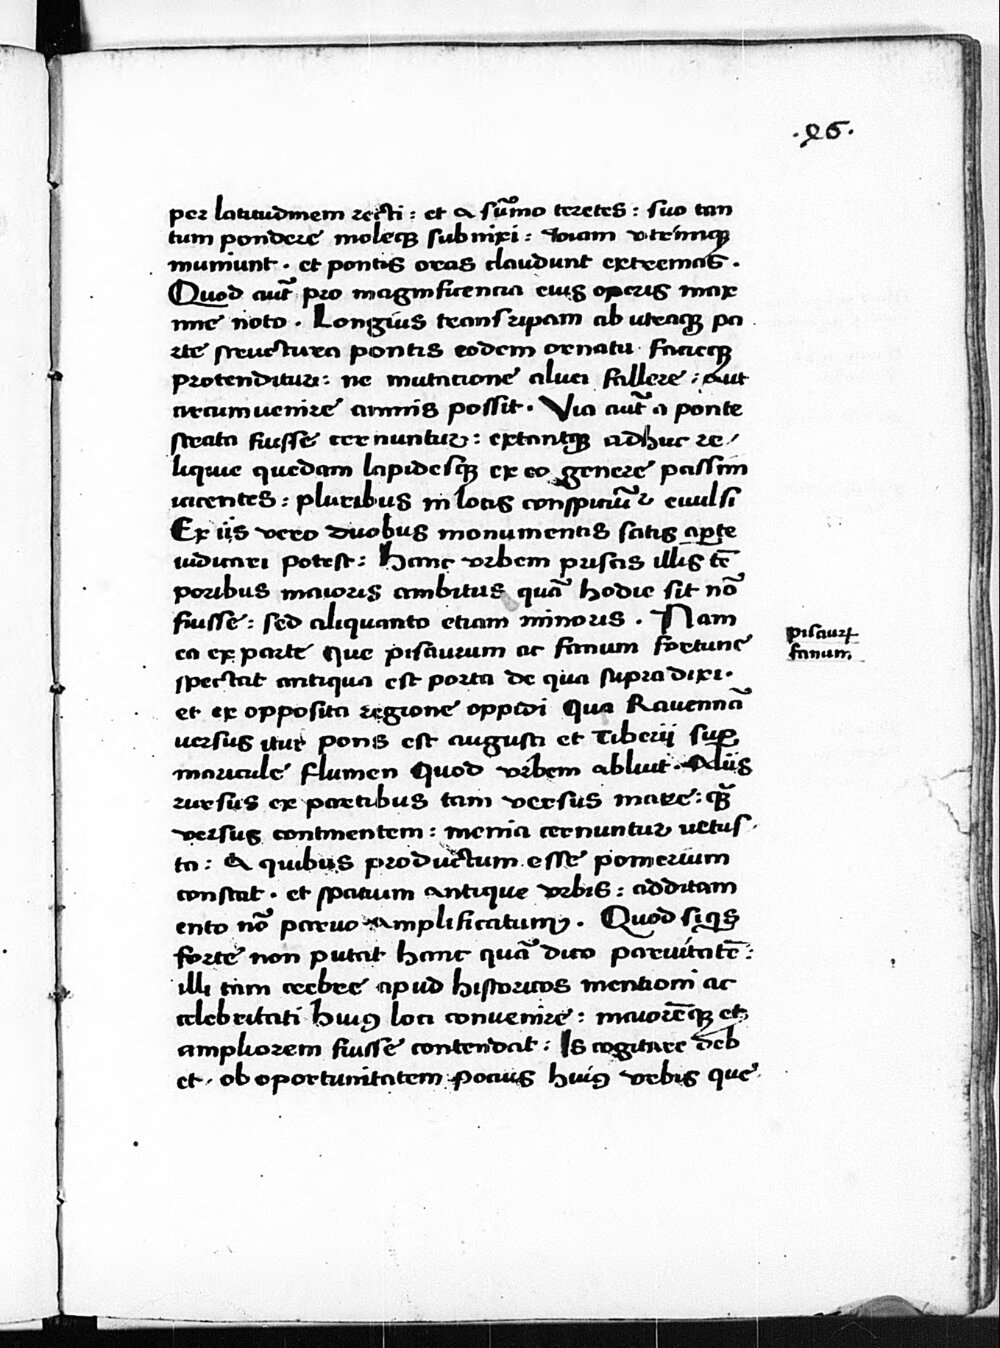 .26.
per latitudinem recti : et a sum̄o teretes : suo tan
tum pondere moleq̄ subnixi : viam utrimq̄
muniunt . et pontis oras claudunt extremas .
Quod aut̄ pro magnificencia eius operis max
ime noto . Longius transripam ab utraq̄ pa
rte structura pontis eodem ornatu facieq̄
protenditur : ne mutacione aluei fallere : aut
circumuenire amnis possit . Via aut̄ a ponte
strata fuisse cernuntur : extantq̄ adhuc re/
liquie quedam lapidesq̄ ex eo genere passim
iacentes : pluribus in locis conspiciūr euulsi
Ex iis vero duobus monumentis satis aperte
iudicari potest : hanc vrbem priscis illis tē
poribus maioris ambitus quā hodie sit nō
fuisse : sed aliquanto etiam minoris . Nam
ea ex parte que pisaurum ac fanum fortune
spectat antiqua est porta de qua supra dixi .
et ex opposita regione oppidi qua Ravennā
uersus itur pons est augusti et Tiberij sup̱
maricule flumen Quod vrbem abluit . Aliis
rursus ex partibus tam versus mare : q̄
versus continentem : menia cernuntur uetus .
ta : a quibus productum esse pomerium
constat . et spatium antique vrbis : additam
ento nō paruo amplificatum . Quod siq̄s
forte non putat hanc quā dico paruitatē :
illi tam crebre apud historicos mentioni ac
celebritati huiꝰ loci convenire : maiorēq̄ et
ampliorem fuisse contendat : Is cogitare deb
et . ob oportunitatem pocius huiꝰ vrbis que
pisaurꝝ
fanum